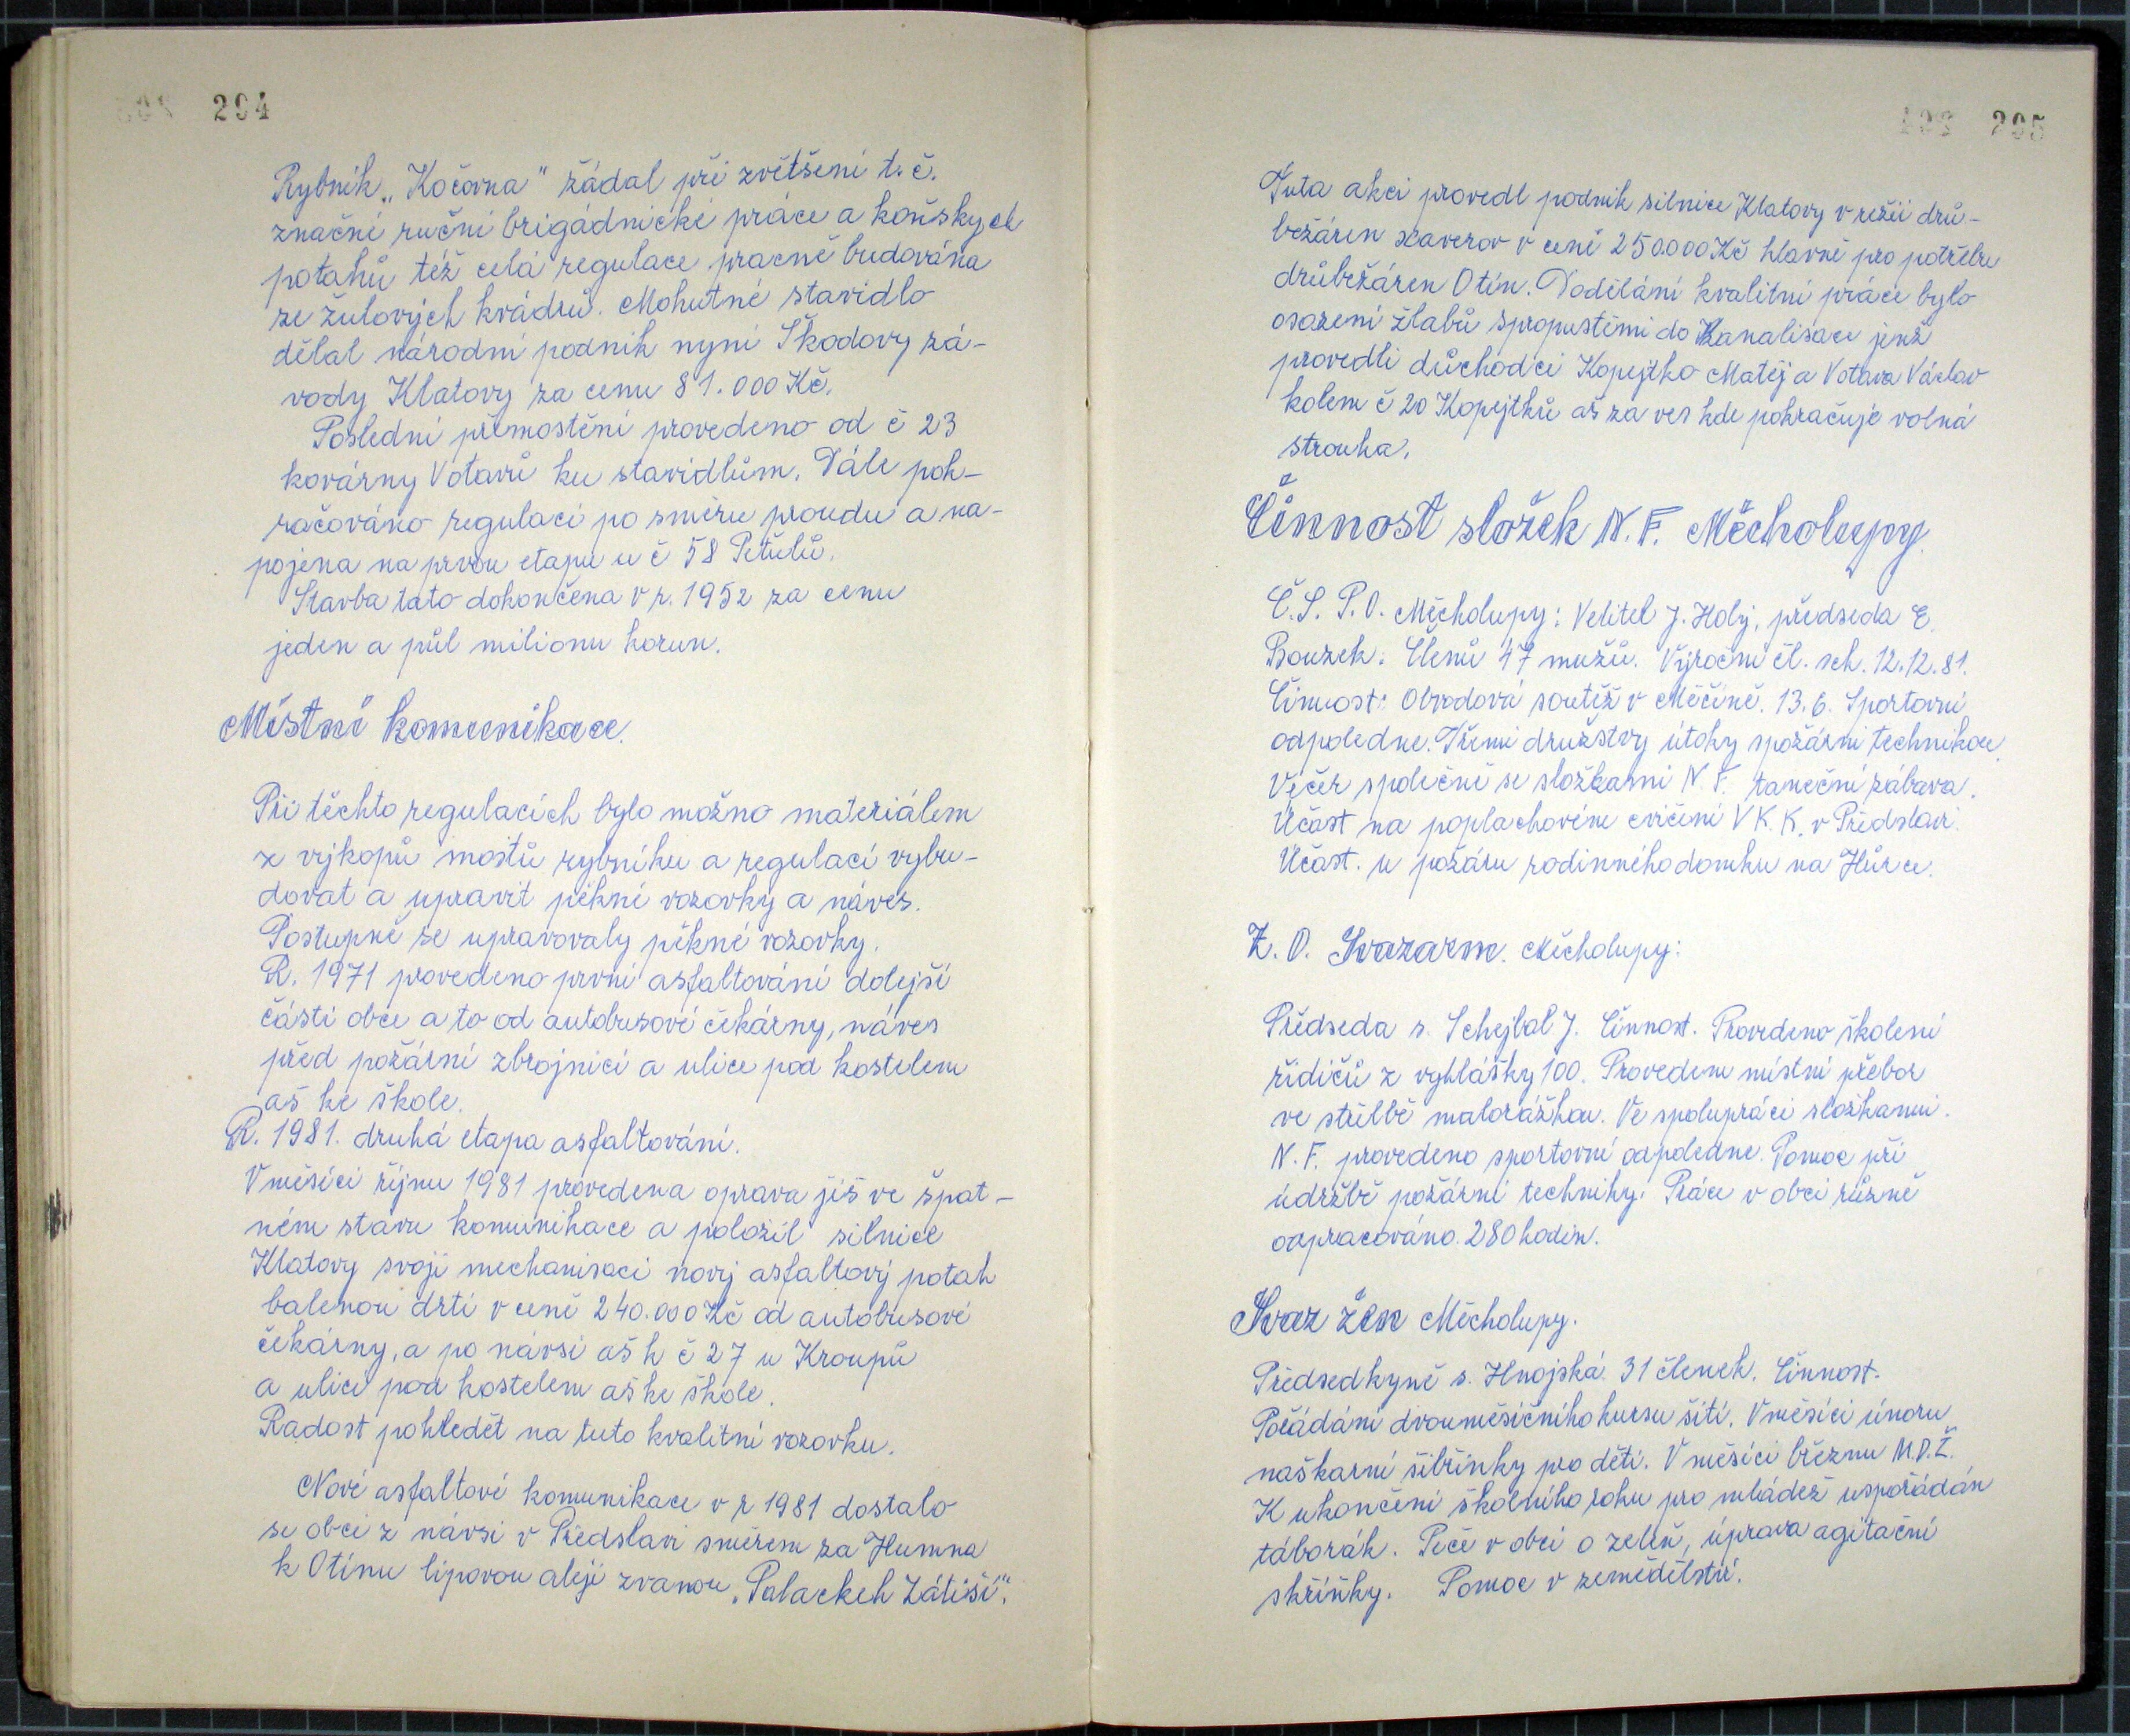 294
Rybník „Kočovna" žádal při zvětšení t.č.
značné ruční brigádnické práce a koňských
potahů též celá regulace pracně budována
ze žulových kvádrů. Mohutné stavidlo
dělal národní podnik nyní Škodovy zá-
vody Klatovy za cenu 81.000 Kč.
Poslední přemostění provedeno od č 23
kovárny Votavů ku stavidlům. Dále pok-
račováno regulací po směru proudu a na-
pojena na prvou etapu u č 58 Petulů.
Stavba tato dokončena v r. 1952 za cenu
jeden a půl milionu korun.
Místní komunikace.
Při těchto regulacích bylo možno materiálem
z výkopů mostů rybníku a regulací vybu-
dovat a upravit pěkné vozovky a náves.
Postupně se upravovaly pěkné vozovky.
R. 1971 provedeno první asfaltování dolejší
části obce a to od autobusové čekárny, náves
před požární zbrojnicí a ulice pod kostelem
aš ke škole.
R. 1981. druhá etapa asfaltování.
V měsíci říjnu 1981 provedena oprava jiš ve špat-
ném stavu komunikace a položil silnice
Klatovy svojí mechanisací nový asfaltový potah
balenou drtí v ceně 240.000 Kč od autobusové
čekárny, a po návsi aš k č 27 u Kroupů
a ulicí pod kostelem aš ke škole.
Radost pohledět na tuto kvalitní vozovku.
Nové asfaltové komunikace v r 1981 dostalo
se obci z návsi v Předslavi směrem za Humna
k Otínu lipovou alejí zvanou „Palackeh Zátiší".
295
Tuto akci provedl podnik silnice Klatovy v režii drů-
bežáren Xaverov v ceně 250.000 Kč hlavně pro potřebu
drůbežáren Otín. Dodělání kvalitní práce bylo
osazení žlabů spropustěmi do Kanalisace jenž
provedli důchodci Kopejtko Matěj a Votava Václav
kolem č 20 Kopejtků aš za ves kde pokračuje volná
strouha.
Činnost složek N.F. Měcholupy.
Č.S.P.O. Měcholupy: Velitel J. Holý, předseda E.
Bouzek. Členů 47 mužů. Výroční čl. sch. 12.12.81.
Činnost: Obvodová soutěž v Měčíně. 13.6. Sportovní
odpoledne. Třemi družstvy útoky spožární technikou.
Večer společně se složkami N.F. taneční zábava.
Účast na poplachovém cvičení V K.K. v Předslavi.
Účast. u požáru rodinného domku na Hůrce.
Z.O. Svazarm. Měcholupy:
Předseda s. Schejbal J. Činnost. Provedeno školení
řidičů z vyhlášky 100. Proveden místní přebor
ve střelbě malorážkou. Ve spolupráci složkami.
N.F. provedeno sportovní odpoledne. Pomoc při
údržbě požární techniky. Práce v obci různě
odpracováno. 280 hodin.
Svaz žen Měcholupy.
Předsedkyně s. Hnojská. 31 členek. Činnost.
Pořádání dvouměsíčního kursu šití. V měsíci únoru
naškarní šibřinky pro děti. V měsíci březnu M.D.Ž.
K ukončení školního roku pro mládež uspořádán
táborák. Péče v obci o zeleň, úprava agitační
skříňky. Pomoc v zemědělství.